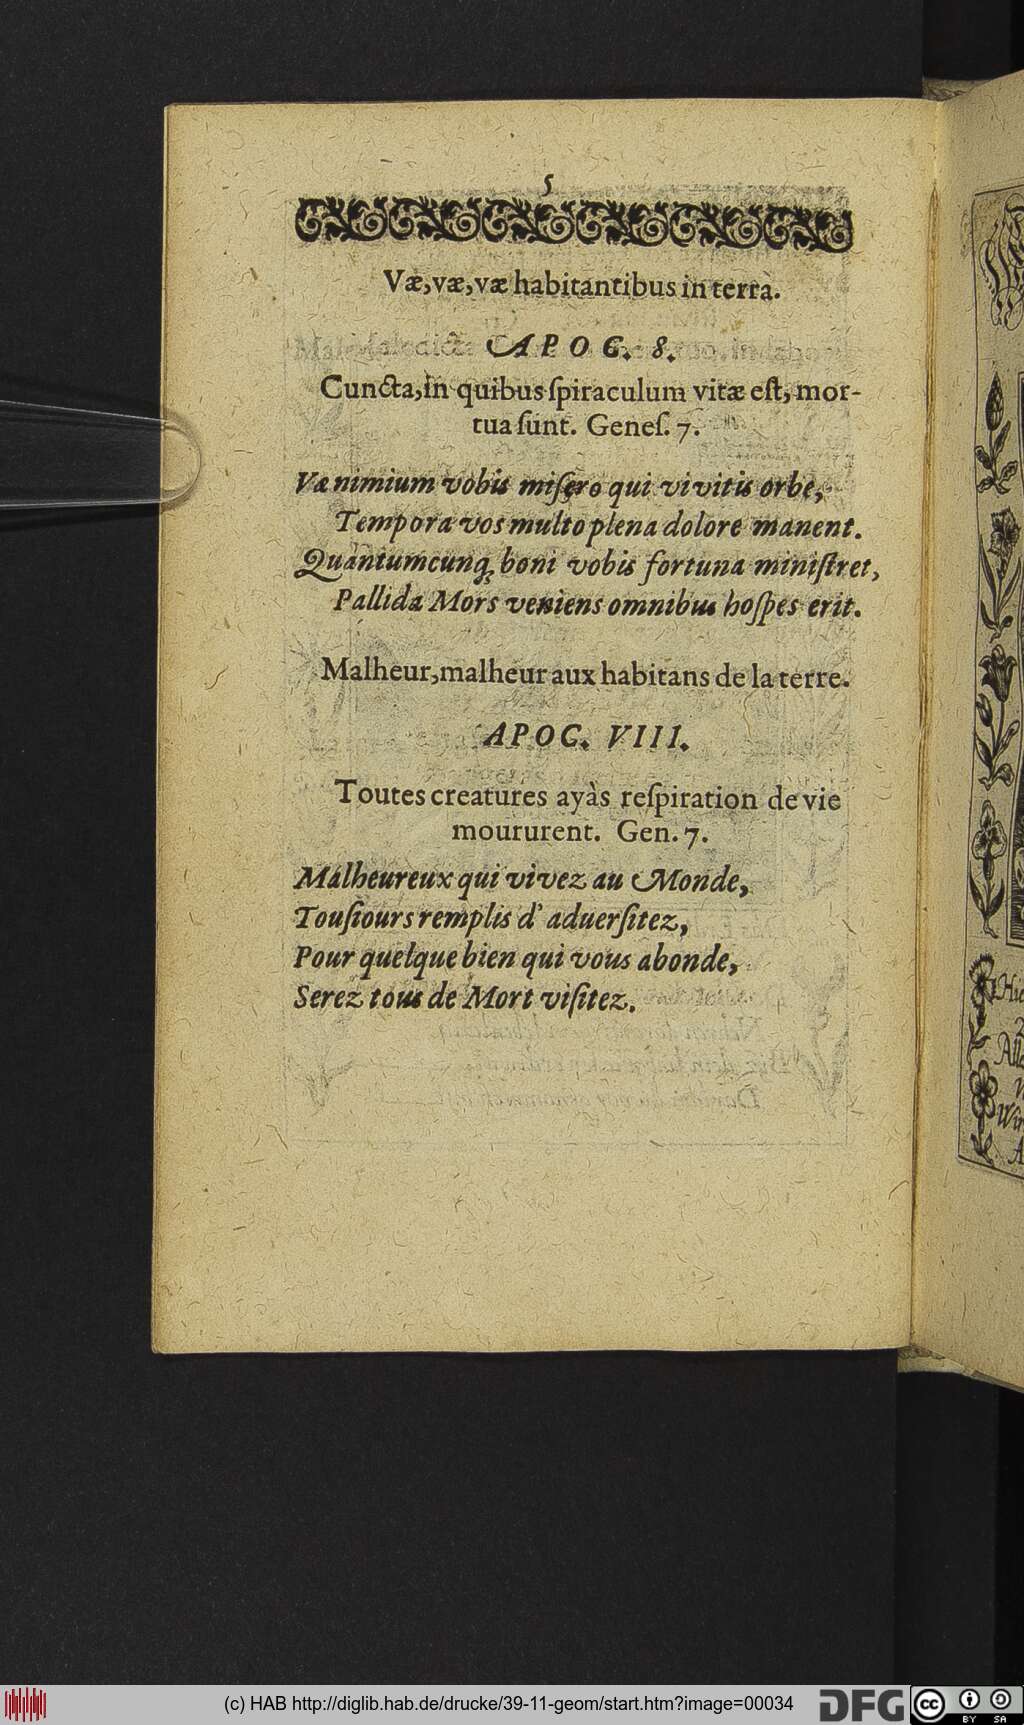 5
Væ, væ, væ habitantibus in terra.
APOC. 8.
Cuncta, in quibus ſpiraculum vitæ eſt, mor-
tua ſunt. Geneſ. 7.
Væ nimium vobis miſero qui vivitis orbe,
Tempora vos multo plena dolore manent.
Quantumcunq; boni vobis fortuna miniſtret,
Pallida Mors veniens omnibus hoſpes erit.
Malheur, malheur aux habitans de la terre.
APOC. VIII.
Toutes creatures ayàs reſpiration de vie
moururent. Gen. 7.
Malheureux qui vivez au Monde,
Touſiours remplis d' aduerſitez,
Pour quelque bien qui vous abonde,
Serez tous de Mort viſitez.
(c) HAB http://diglib.hab.de/drucke/39-11-geom/start.htm?image=00034
DFG
cc
BY SA